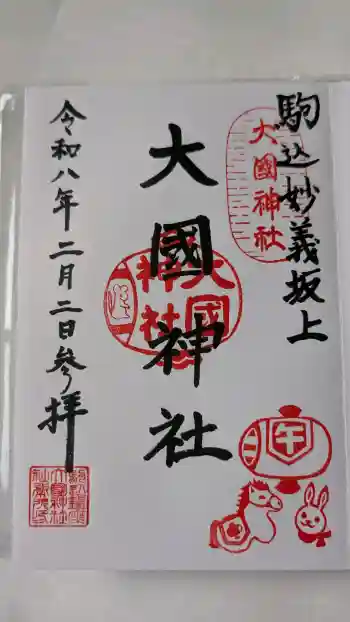 駒込妙義坂上
大國神社
大國神社
大國神社
令和八年二月二日参拝
午